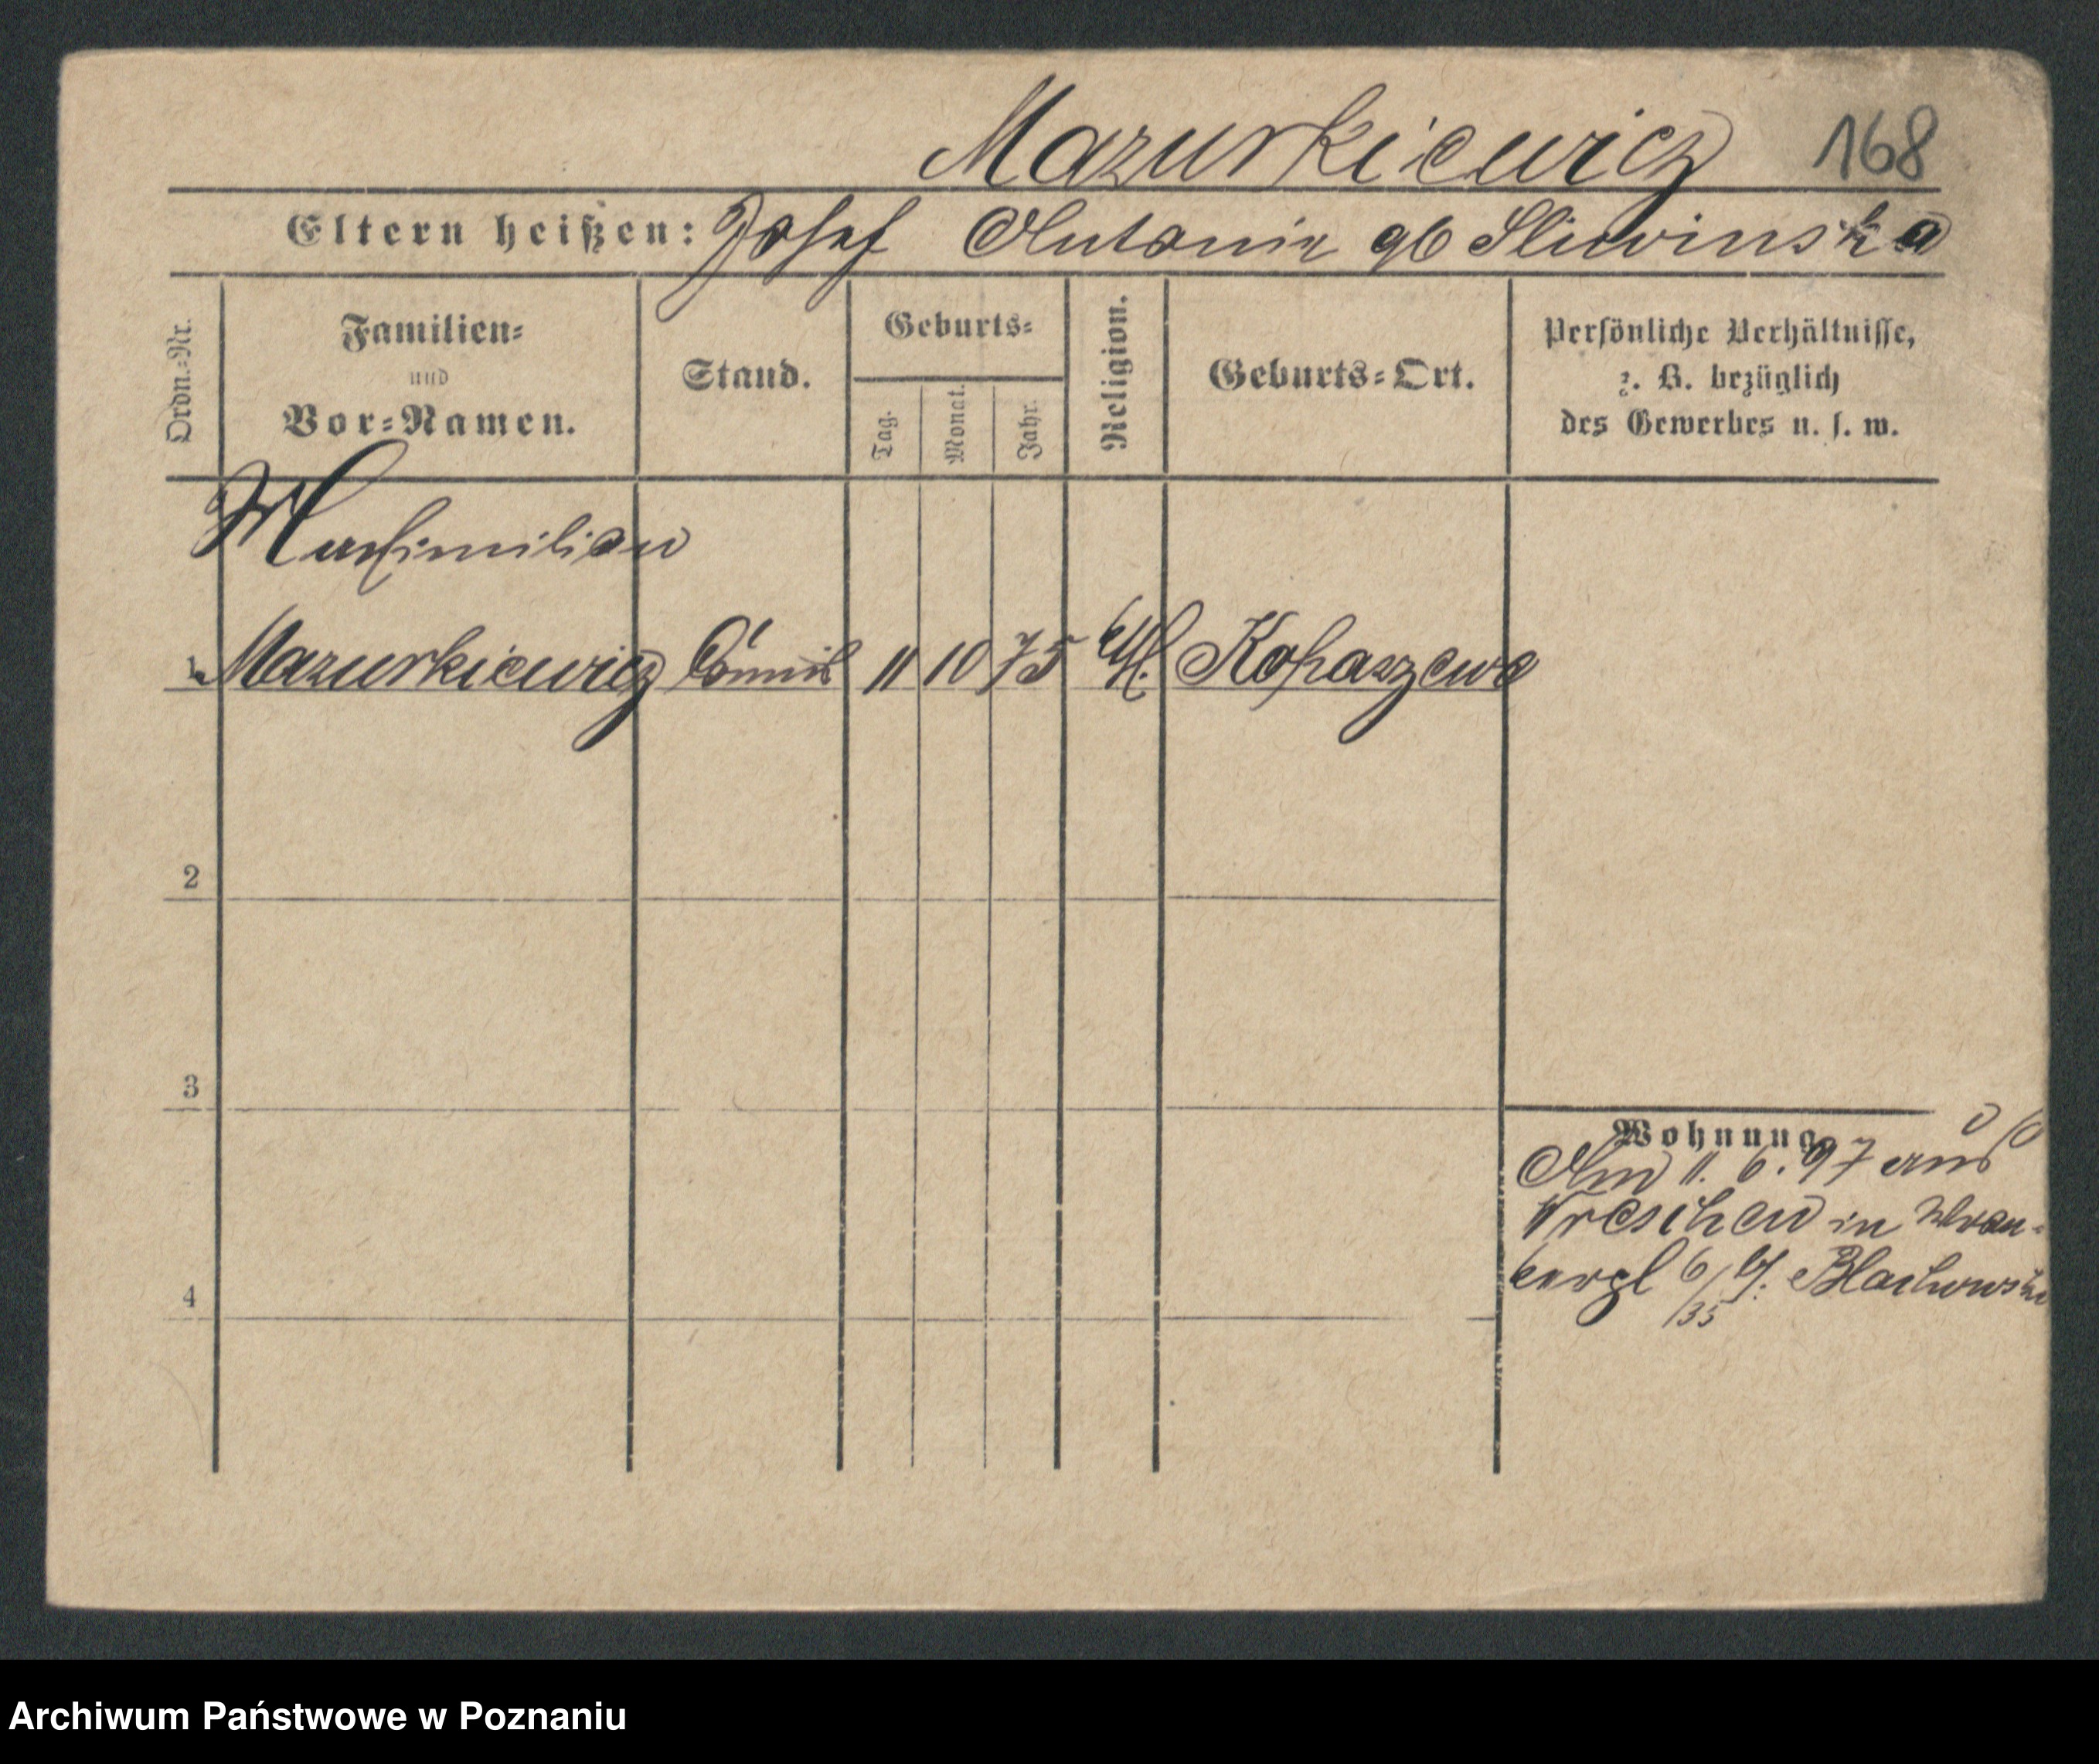 Mazurkiewicz 168
Eltern heißen: Josef Antonia gb Sliwinska
Ordn.=Nr.
Familien=
und
Vor=Namen.
Stand.
Geburts=
Tag.
Monat.
Jahr.
Religion.
Geburts=Ort.
Persönliche Verhältnisse,
z. B. bezüglich
des Gewerbes u. s. w.
Maximilian
1 Mazurkiewicz Comis 11 10 75 Kokaszewo
2
3
4
Wohnung
Am 11. 6. 97 aus
Wreschen in
6/35 Blachowski
Archiwum Państwowe w Poznaniu